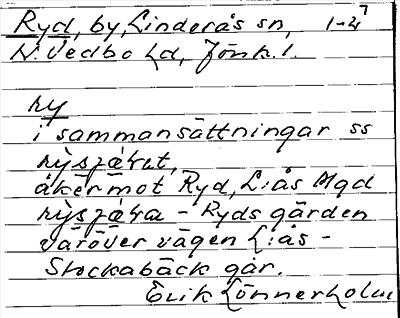 Ryd, by, Linderås sn, 1-2⁷
N. Vedbo hd, Jönk. l.
ry
i sammansättningar ss
åker mot Ryd, Liås Mgd
- Ryds gärden
varöver vägen Liås -
Stockabäck går.
Erik Lönnerholm